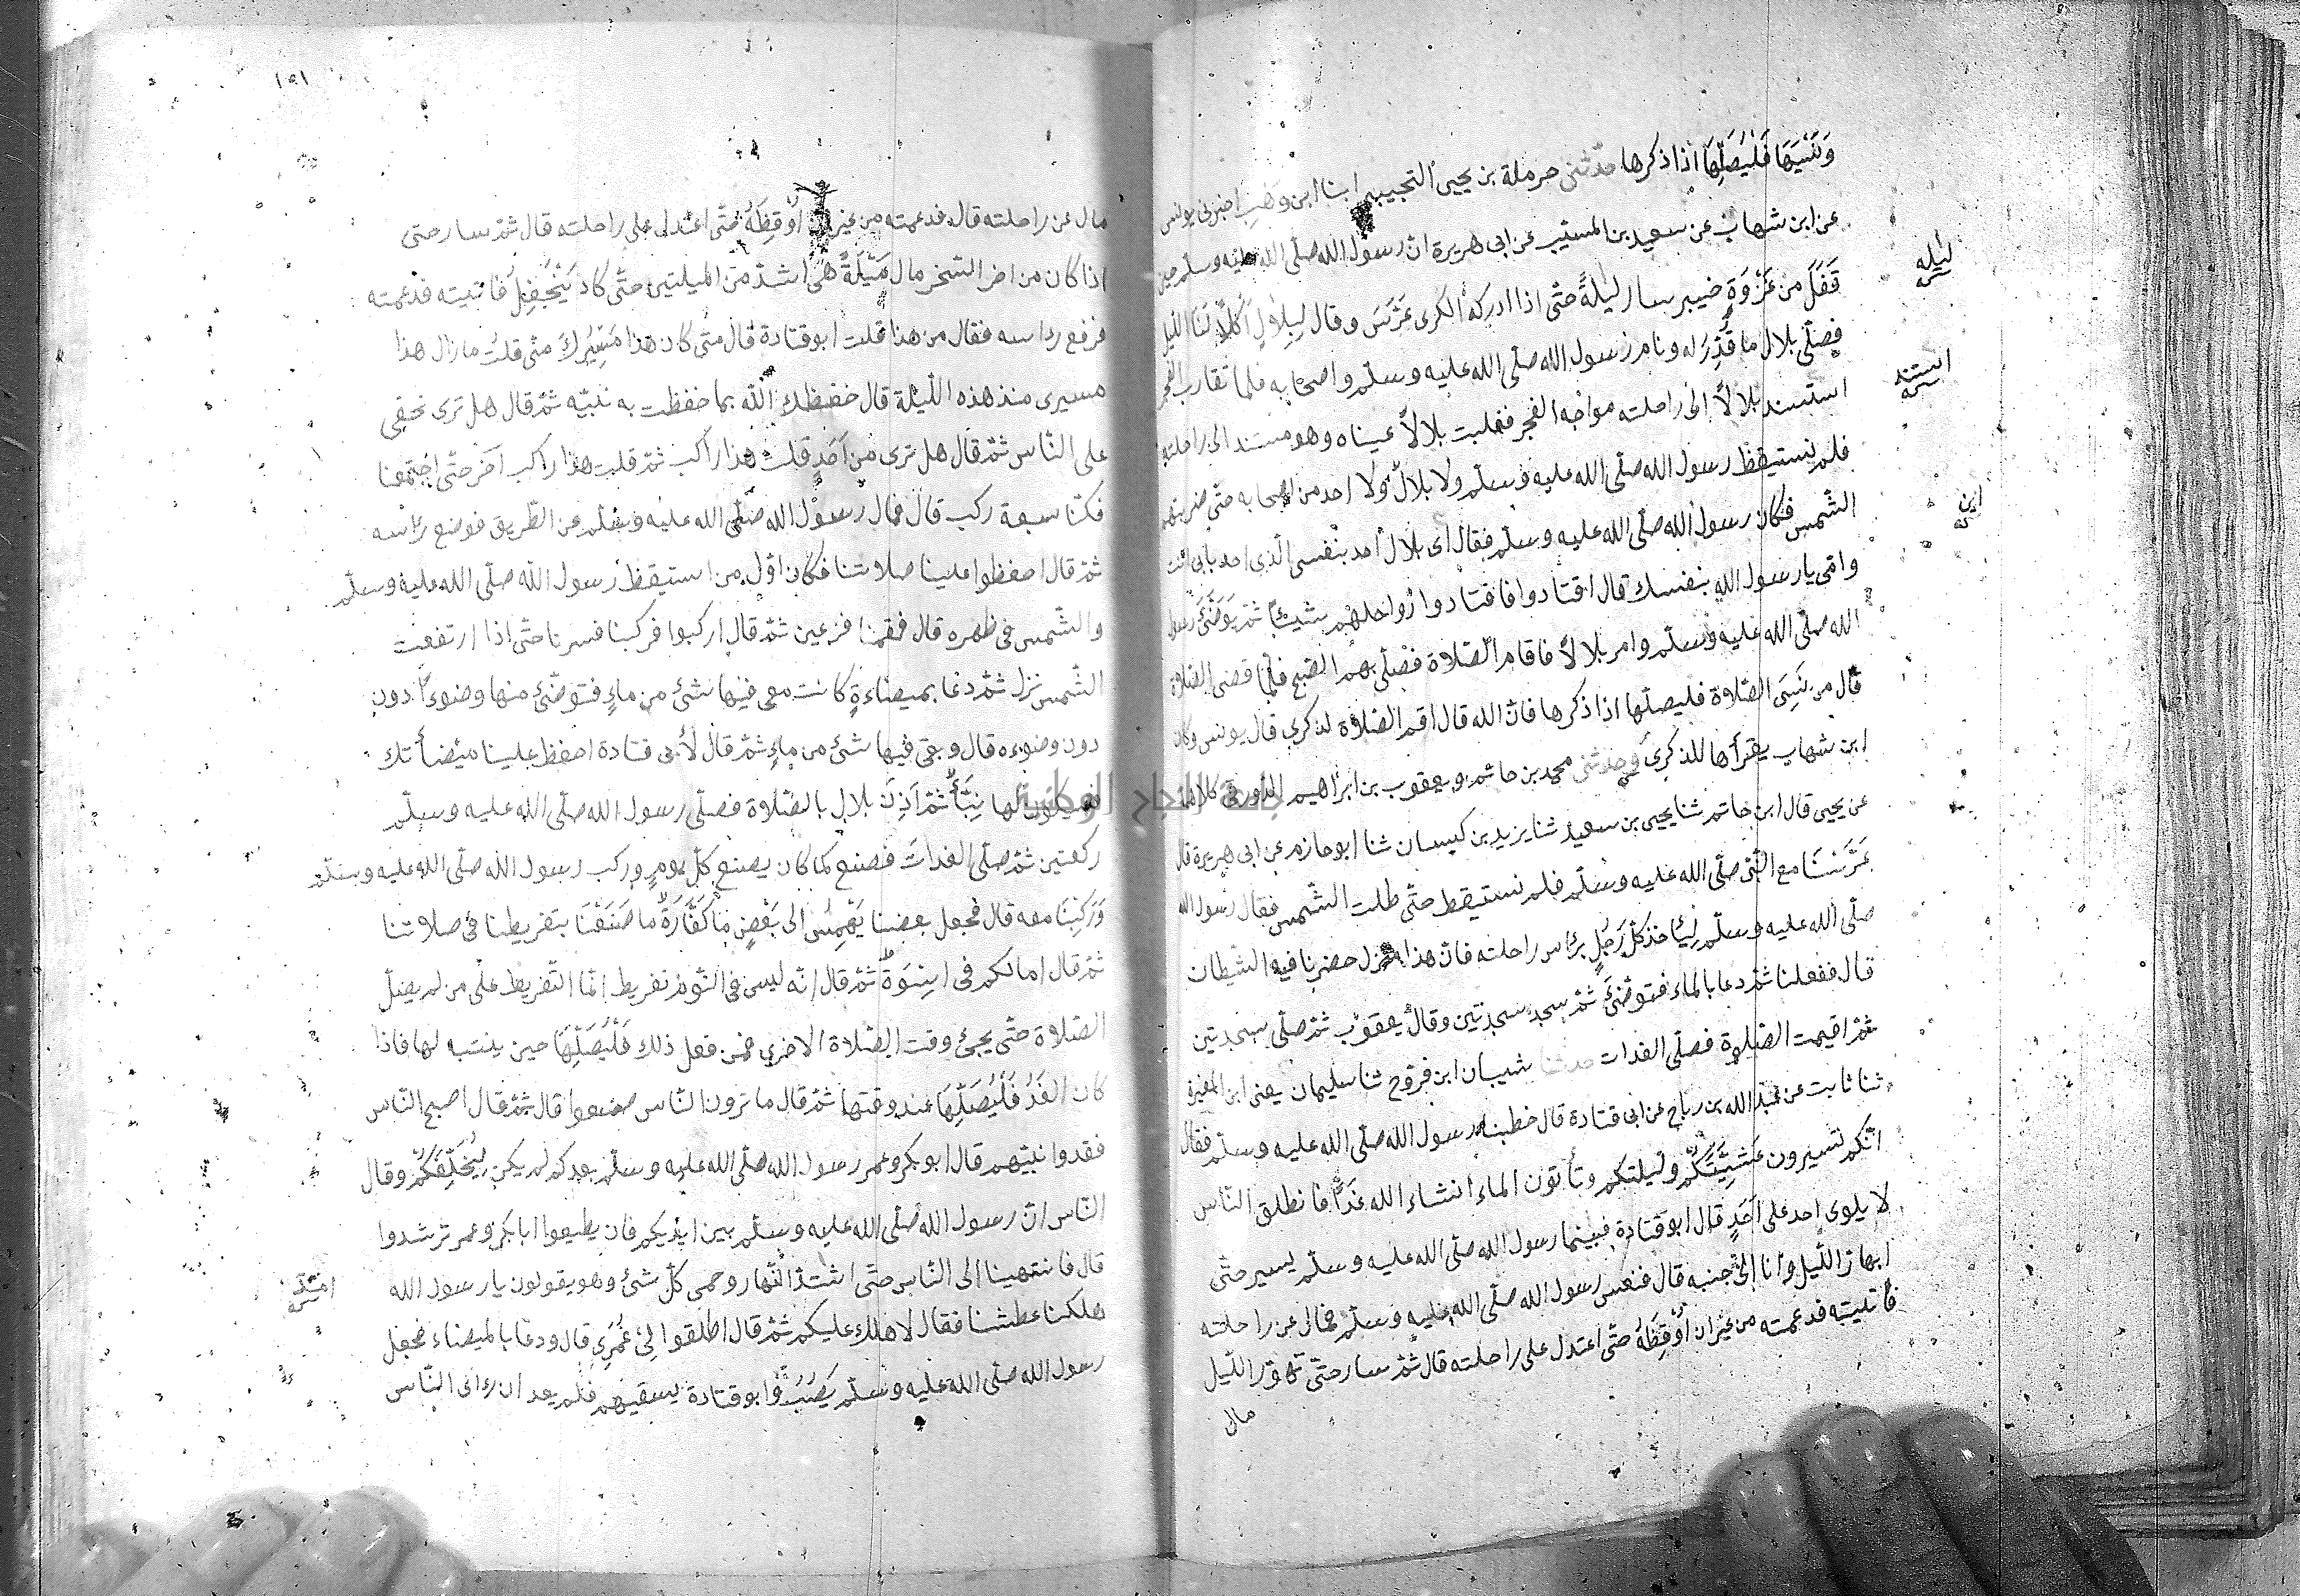 وَنَسِيَهَا فَلْيُصَلِّهَا اذا ذكرها حدثنى حرملة بن يحيى التجيبى ابنا ابن وَهْبٍ اخبرنى يونس
عن ابن شهاب عن سعيد بن المسيّب عن ابى هريرة انّ رسول الله صلّى الله عليه وسلّم حين
قَفَلَ من غَزْوَةِ خيبر سار ليلةً حتّى اذا ادركه الكرى عَرَّسَ وقال لِبِلَالٍ اكْلَأْ لَنَا الليل
ليله
فصلّى بلال ما قُدِّرَ له ونام رسول الله صلّى الله عليه وسلّم واصحابه فلما تقارب الفجر
استسند بلالاً الى راحلته مواجه الفجر فغلبت بلالاً عيناه وهو مستند الى راحلته
استند
فلم يستيقظ رسول الله صلّى الله عليه وسلّم ولا بلالٌ ولا احد من اصحابه حتّى ضربتهم
الشّمس فكان رسول الله صلّى الله عليه وسلّم فقال اى بلال اخذ بنفسى الّذى اخذ بابى انت
اين
وامّى يا رسول الله بنفسك قال اقتادوا فاقتادوا رواحلهم شيئاً ثمّ تَوَضَّئَ رسول
الله صلّى الله عليه وسلّم وامر بلالاً فاقام الصّلاة فصلّى بهم الصّبح فلمّا قضى الصّلاة
قال من نَسِىَ الصّلاوة فليصلّها اذا ذكرها فانّ الله قال اقم الصّلاة لذكرى قال يونس وكان
ابن شهاب يقرأها للذكرىَ وحدثنى محمد بن حاتم ويعقوب بن ابراهيم الدّورقى كلاهما
عن يحيى قال ابن حاتم ثنا يحيى بن سعيد ثنا يزيد بن كيسان ثنا ابو حازم عن ابى هريرة قال
عَرَّسْنَا مع النّبىّ صلّى الله عليه وسلّم فلم نستيقظ حتّى طلت الشّمس فقال رسول الله
صلّى الله عليه وسلّم لِيَأخذ كلّ رَجُلٍ برأس راحلته فانّ هذا منزل حضرنا فيه الشيطان
قال ففعلنا ثمّ دعا بالماء فتوضّئَ ثمّ سجد سجدتين وقال يعقوب ثمّ صلّى سجدتين
ثمّ اقيمت الصّلاوة فصلّى الغدات حدثنا شيبان ابن فرّوخ ثنا سليمان يعنى ابن المغيرة
ثنا ثابت عن عبد الله بن رباح عن ابى قتادة قال خطبنا رسول الله صلّى الله عليه وسلّم فقال
انّكم تسيرون عَشِيَّتَكُمْ وليلتكم وتأتون الماء انشاء الله غَدًا فانطلق النّاس
لا يلوى احد على اَحَدٍ قال ابو قتادة فبينما رسول الله صلّى الله عليه وسلّم يسير حتّى
ابهارّ اللّيل وانا الى جنبه قال فنعس رسول الله صلّى الله عليه وسلّم فمال عن راحلته
فاتيته فدعمته من غير ان اُوْقِظَهُ حتّى اعتدل على راحلته قال ثمّ سار حتّى تهوّر اللّيل
مال
١٥١
مال عن راحلته قال فدعمته من غير ان اُوْقِظَهُ حتّى اعتدل على راحلته قال ثمّ سار حتى
اذا كان من اخر السّحر مال مَيْلَةً هى اشدّ من الميلتين حتّى كاد يَنْجَفِلُ فاتيته فدعمته
فرفع رأسه فقال من هذا قلت ابو قتادة قال متى كان هذا مَسِيْرُكَ منّى قلت ما زال هذا
مسيرى منذ هذه اللّيلة قال حفظك اللّه بما حفظت به نبيّه ثمّ قال هل ترى نخفى
على النّاس ثمّ قال هل ترى من اَحَدٍ قلت هذا راكب ثمّ قلت هذا راكب اخر حتّى اجتمعنا
فكنّا سبعة ركب قال فمال رسول الله صلّى الله عليه وسلّم عن الطّريق فوضع رأسه
ثمّ قال احفظوا علينا صلاتنا فكان اوّل من استيقظ رسول الله صلّى الله عليه وسلّم
والشّمس فى ظهره قال فقمنا فزعين ثمّ قال اركبوا فركبنا فسرنا حتّى اذا ارتفعت
الشّمس نزل ثمّ دعا بميضاءةٍ كانت معى فيها شئ من ماءٍ فتوضّئ منها وضوءًا دون
دون وضوءه قال وبقى فيها شئ من ماءٍ ثمّ قال لأبى قتادة احفظ علينا ميضأتك
فسيكون لها نَبَأٌ ثمّ اَذِنَ بلال بالصّلاوة فصلّى رسول الله صلّى الله عليه وسلّم
ركعتين ثمّ صلّى الغدات فصنع كما كان يصنع كلّ يومٍ وركب رسول الله صلّى الله عليه وسلّم
وَرَكِبْنَا معه قال فجعل بعضنا يَهْمِسُ الى بَعْضٍ مَا كَفَّارَةُ ما صَنَعْنَا بتفريطنا فى صلاتنا
ثمّ قال اما لكم فى اسْوَةٌ ثمّ قال انّه ليس فى النّوم تفريط انّما التّفريط على من لم يصلّ
الصّلاة حتّى يجئ وقت الصّلاة الاخرى فمن فعل ذلك فَلْيُصَلِّهَا حين ينتبه لها فاذا
كان الغَدُ فَلْيُصَلِّهَا عند وقتها ثمّ قال ما ترون النّاس صنعوا قال ثمّ قال اصبح النّاس
فقدوا نبيّهم قال ابو بكر وعمر رسول الله صلّى الله عليه وسلّم بعدكم لم يكن لِيُخَلِّفَكُمْ وقال
النّاس انّ رسول الله صلّى الله عليه وسلّم بين ايديكم فان يطيعوا ابا بكر وعمر ترشدوا
قال فانتهينا الى النّاس حتّى اشتدّ النّهار وحمى كلّ شئ وهو يقولون يا رسول الله
امتدّ
هلكنا عطشنا فقال لا هلك عليكم ثمّ قال اطلقوا لِىْ غُمَرِى قال ودعا بالميضاء فجعل
رسول الله صلّى الله عليه وسلّم يَصُبُّ وابو قتادة يسقيهم فلم يعد ان رءاى النّاس